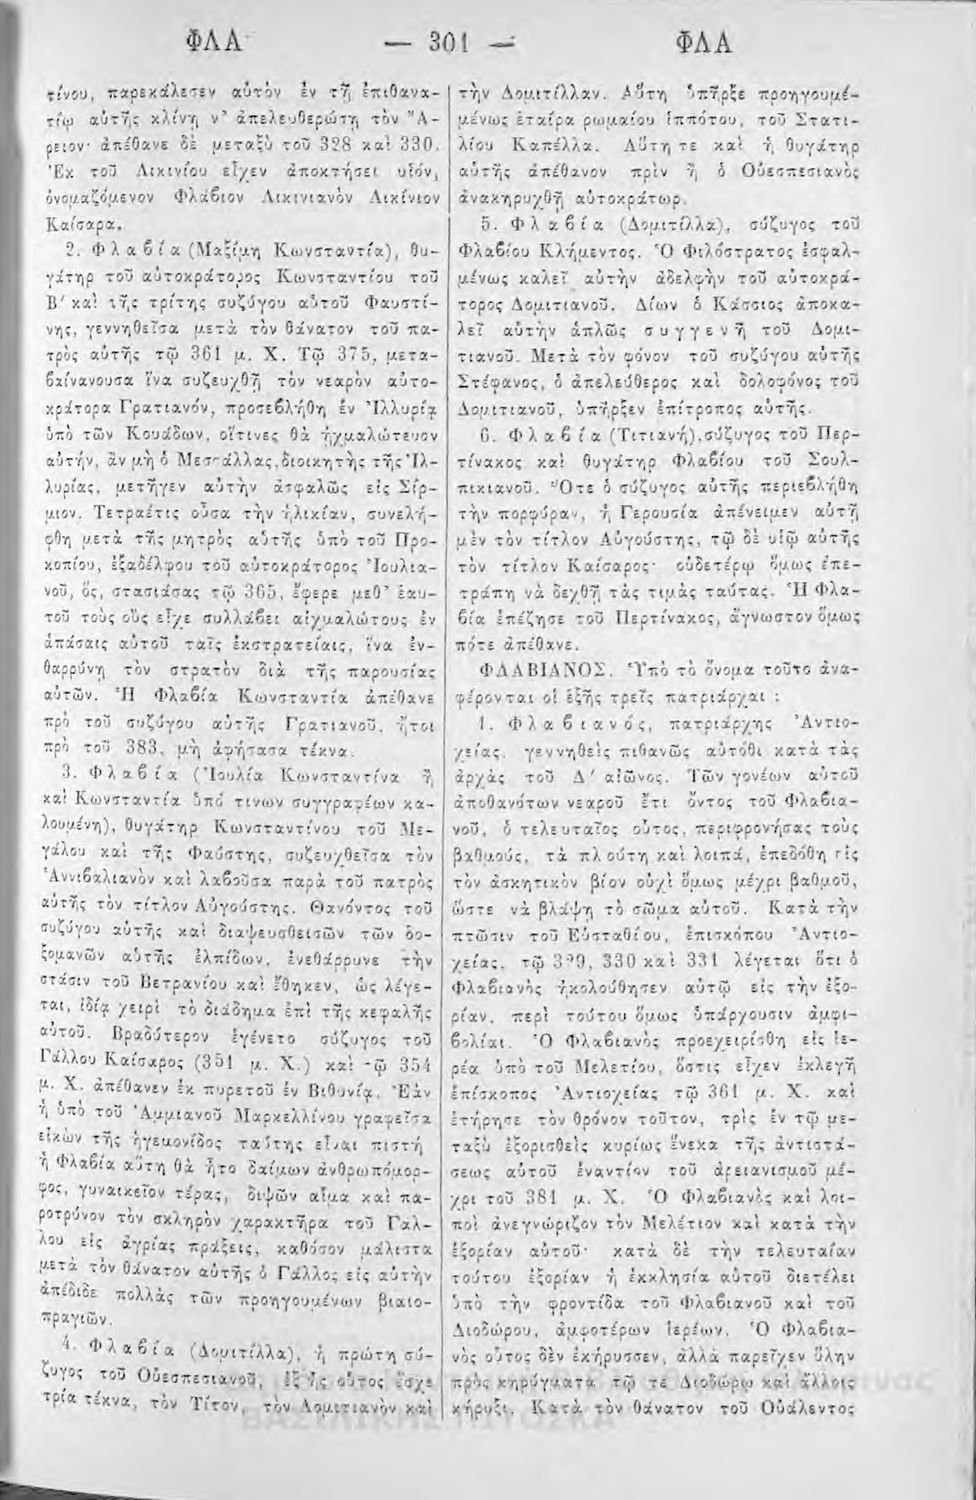 ΦΛΑ — 301 — ΦΛΑ
τίνου, παρεκάλεσεν αὐτὸν ἐν τῇ ἐπιθανα-
τίῳ αὐτῆς κλίνῃ ν' ἀπελευθερώσῃ τὸν Ἄ-
ρειον· ἀπέθανε δὲ μεταξὺ τοῦ 328 καὶ 330.
Ἐκ τοῦ Λικινίου εἶχεν ἀποκτήσει υἱόν,
ὀνομαζόμενον Φλάβιον Λικινιανὸν Λικίνιον
Καίσαρα.
2. Φλαβία (Μαξίμη Κωνσταντία), θυ-
γάτηρ τοῦ αὐτοκράτορος Κωνσταντίου τοῦ
Β' καὶ τῆς τρίτης συζύγου αὐτοῦ Φαυστί-
νης, γεννηθεῖσα μετὰ τὸν θάνατον τοῦ πα-
τρὸς αὐτῆς τῷ 361 μ. Χ. Τῷ 375, μετα-
βαίνανουσα ἵνα συζευχθῇ τὸν νεαρὸν αὐτο-
κράτορα Γρατιανόν, προσεβλήθη ἐν Ἰλλυρίᾳ
ὑπὸ τῶν Κουάδων, οἵτινες θὰ ᾐχμαλώτευον
αὐτήν, ἂν μὴ ὁ Μεσσάλλας, διοικητὴς τῆς Ἰλ-
λυρίας, μετῆγεν αὐτὴν ἀσφαλῶς εἰς Σίρ-
μιον. Τετραέτις οὖσα τὴν ἡλικίαν, συνελή-
φθη μετὰ τῆς μητρὸς αὐτῆς ὑπὸ τοῦ Προ-
κοπίου, ἐξαδέλφου τοῦ αὐτοκράτορος Ἰουλια-
νοῦ, ὅς, στασιάσας τῷ 365, ἔφερε μεθ' ἑαυ-
τοῦ τοὺς οὓς εἶχε συλλάβει αἰχμαλώτους ἐν
ἁπάσαις αὐτοῦ ταῖς ἐκστρατείαις, ἵνα ἐν-
θαρρύνῃ τὸν στρατὸν διὰ τῆς παρουσίας
αὐτῶν. Ἡ Φλαβία Κωνσταντία ἀπέθανε
πρὸ τοῦ συζύγου αὐτῆς Γρατιανοῦ, ἤτοι
πρὸ τοῦ 383, μὴ ἀφήσασα τέκνα.
3. Φλαβία (Ἰουλία Κωνσταντίνα ἢ
καὶ Κωνσταντία ὑπό τινων συγγραφέων κα-
λουμένη), θυγάτηρ Κωνσταντίνου τοῦ Με-
γάλου καὶ τῆς Φαύστης, συζευχθεῖσα τὸν
Ἀννιβαλιανὸν καὶ λαβοῦσα παρὰ τοῦ πατρὸς
αὐτῆς τὸν τίτλον Αὐγούστης. Θανόντος τοῦ
συζύγου αὐτῆς καὶ διαψευσθεισῶν τῶν δο-
ξομανῶν αὐτῆς ἐλπίδων, ἐνεθάρρυνε τὴν
στάσιν τοῦ Βετρανίου καὶ ἔθηκεν, ὡς λέγε-
ται, ἰδίᾳ χειρὶ τὸ διάδημα ἐπὶ τῆς κεφαλῆς
αὐτοῦ. Βραδύτερον ἐγένετο σύζυγος τοῦ
Γάλλου Καίσαρος (351 μ. Χ.) καὶ τῷ 354
μ. Χ. ἀπέθανεν ἐκ πυρετοῦ ἐν Βιθυνίᾳ. Ἐὰν
ἡ ὑπὸ τοῦ Ἀμμιανοῦ Μαρκελλίνου γραφεῖσα
εἰκὼν τῆς ἡγεμονίδος ταύτης εἶναι πιστή
ἡ Φλαβία αὕτη θὰ ἦτο δαίμων ἀνθρωπόμορ-
φος, γυναικεῖον τέρας, διψῶν αἷμα καὶ πα-
ροτρύνον τὸν σκληρὸν χαρακτῆρα τοῦ Γάλ-
λου εἰς ἀγρίας πράξεις, καθόσον μάλιστα
μετὰ τὸν θάνατον αὐτῆς ὁ Γάλλος εἰς αὐτὴν
ἀπέδιδε πολλὰς τῶν προηγουμένων βιαιο-
πραγιῶν.
4. Φλαβία (Δομιτίλλα), ἡ πρώτη σύ-
ζυγος τοῦ Οὐεσπεσιανοῦ, ἐξ ἧς οὗτος ἔσχε
τρία τέκνα, τὸν Τίτον, τὸν Δομιτιανὸν καὶ
τὴν Δομιτίλλαν. Αὕτη ὑπῆρξε προηγουμέ-
μένως ἑταίρα ρωμαίου ἱππότου, τοῦ Στατι-
λίου Καπέλλα. Αὕτη τε καὶ ἡ θυγάτηρ
αὐτῆς ἀπέθανον πρὶν ἢ ὁ Οὐεσπεσιανὸς
ἀνακηρυχθῇ αὐτοκράτωρ.
5. Φλαβία (Δομιτίλλα), σύζυγος τοῦ
Φλαβίου Κλήμεντος. Ὁ Φιλόστρατος ἐσφαλ-
μένως καλεῖ αὐτὴν ἀδελφὴν τοῦ αὐτοκρά-
τορος Δομιτιανοῦ. Δίων ὁ Κάσσιος ἀποκα-
λεῖ αὐτὴν ἁπλῶς συγγενῆ τοῦ Δομι-
τιανοῦ. Μετὰ τὸν φόνον τοῦ συζύγου αὐτῆς
Στέφανος, ὁ ἀπελεύθερος καὶ δολοφόνος τοῦ
Δομιτιανοῦ, ὑπῆρξεν ἐπίτροπος αὐτῆς.
6. Φλαβία (Τιτιανή), σύζυγος τοῦ Περ-
τίνακος καὶ θυγάτηρ Φλαβίου τοῦ Σουλ-
πικιανοῦ. Ὅτε ὁ σύζυγος αὐτῆς περιεβλήθη
τὴν πορφύραν, ἡ Γερουσία ἀπένειμεν αὐτῇ
μὲν τὸν τίτλον Αὐγούστης, τῷ δὲ υἱῷ αὐτῆς
τὸν τίτλον Καίσαρος· οὐδετέρῳ ὅμως ἐπε-
τράπη νὰ δεχθῇ τὰς τιμὰς ταύτας. Ἡ Φλα-
βία ἐπέζησε τοῦ Περτίνακος, ἄγνωστον ὅμως
πότε ἀπέθανε.
ΦΛΑΒΙΑΝΟΣ. Ὑπὸ τὸ ὄνομα τοῦτο ἀνα-
φέρονται οἱ ἑξῆς τρεῖς πατριάρχαι :
1. Φλαβιανός, πατριάρχης Ἀντιο-
χείας, γεννηθεὶς πιθανῶς αὐτόθι κατὰ τὰς
ἀρχὰς τοῦ Δ' αἰῶνος. Τῶν γονέων αὐτοῦ
ἀποθανότων νεαροῦ ἔτι ὄντος τοῦ Φλαβια-
νοῦ, ὁ τελευταῖος οὗτος, περιφρονήσας τοὺς
βαθμούς, τὰ πλούτη καὶ λοιπά, ἐπεδόθη εἰς
τὸν ἀσκητικὸν βίον οὐχὶ ὅμως μέχρι βαθμοῦ,
ὥστε νὰ βλάψῃ τὸ σῶμα αὐτοῦ. Κατὰ τὴν
πτῶσιν τοῦ Εὐσταθίου, ἐπισκόπου Ἀντιο-
χείας, τῷ 329, 330 καὶ 331 λέγεται ὅτι ὁ
Φλαβιανὸς ἠκολούθησεν αὐτῷ εἰς τὴν ἐξο-
ρίαν, περὶ τούτου ὅμως ὑπάρχουσιν ἀμφι-
βολίαι. Ὁ Φλαβιανὸς προεχειρίσθη εἰς ἱε-
ρέα ὑπὸ τοῦ Μελετίου, ὅστις εἶχεν ἐκλεγῆ
ἐπίσκοπος Ἀντιοχείας τῷ 361 μ. Χ. καὶ
ἐτήρησε τὸν θρόνον τοῦτον, τρὶς ἐν τῷ με-
ταξὺ ἐξορισθεὶς κυρίως ἕνεκα τῆς ἀντιστά-
σεως αὐτοῦ ἐναντίον τοῦ ἀρειανισμοῦ μέ-
χρι τοῦ 381 μ. Χ. Ὁ Φλαβιανὸς καὶ λοι-
ποὶ ἀνεγνώριζον τὸν Μελέτιον καὶ κατὰ τὴν
ἐξορίαν αὐτοῦ· κατὰ δὲ τὴν τελευταίαν
τούτου ἐξορίαν ἡ ἐκκλησία αὐτοῦ διετέλει
ὑπὸ τὴν φροντίδα τοῦ Φλαβιανοῦ καὶ τοῦ
Διοδώρου, ἀμφοτέρων ἱερέων. Ὁ Φλαβια-
νὸς οὗτος δὲν ἐκήρυσσεν, ἀλλὰ παρεῖχεν ὕλην
πρὸς κηρύγματα τῷ τε Διοδώρῳ καὶ ἄλλοις
κήρυξι. Κατὰ τὸν θάνατον τοῦ Οὐάλεντος